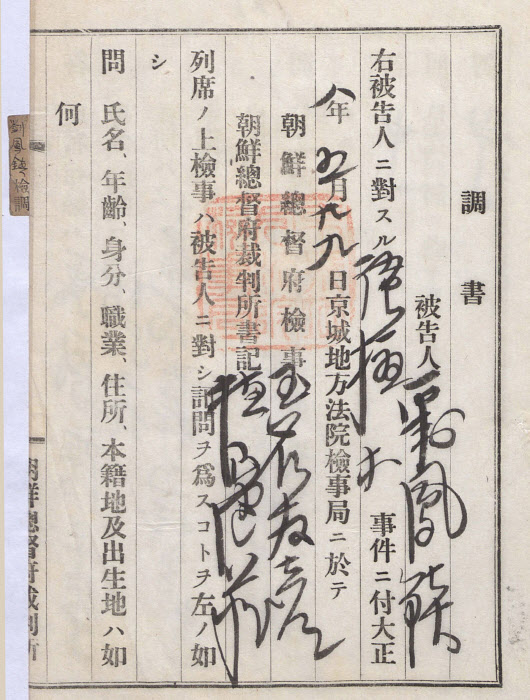 調書
被告人 劉鳳鎮
右被告人ニ對スル 事件ニ付大正
八年 月十九日京城地方法院檢事局ニ於テ
朝鮮總督府檢事 玉名友彦
朝鮮總督府裁判所書記
列席ノ上檢事ハ被告人ニ對シ訊問ヲ爲スコトヲ左ノ如
シ
問 氏名、年齡、身分、職業、住所、本籍地及出生地ハ如
何
朝鮮總督府裁判所
劉鳳鎮、檢調